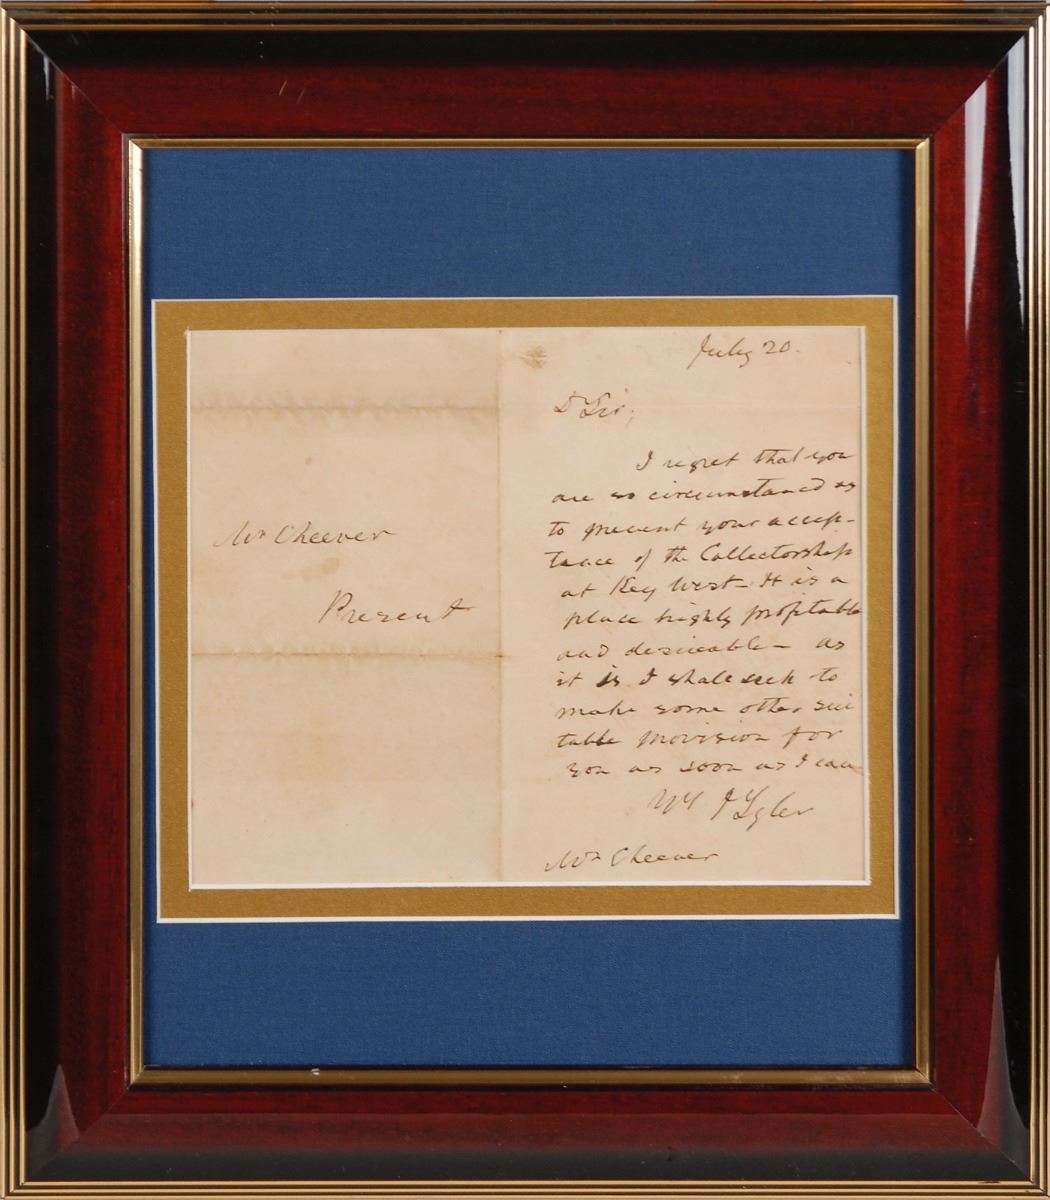 Mr Cheever
Present
July 20.
Dr Sir,
I regret that you
are so circumstanced as
to prevent your accep-
tance of the Collectorship
at Key West - It is a
place highly profitable
and desireable - as
it is I shall seek to
make some other sui
table provision for
you as soon as I can
J Tyler
Mr Cheever